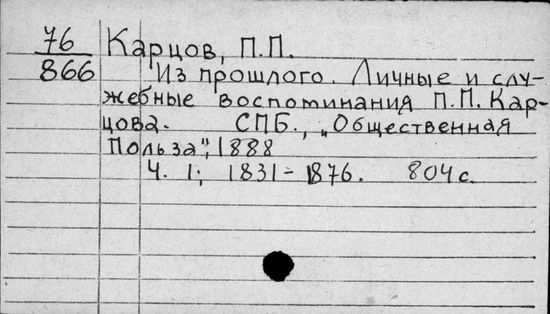 76 Карцов, П.П.
866 Из прошлого. Личные и слу-
жебные воспоминания П.П. Кар-
цова. СПБ., „Общественная
Польза", 1888
Ч. 1; 1831-1876. 804 с.